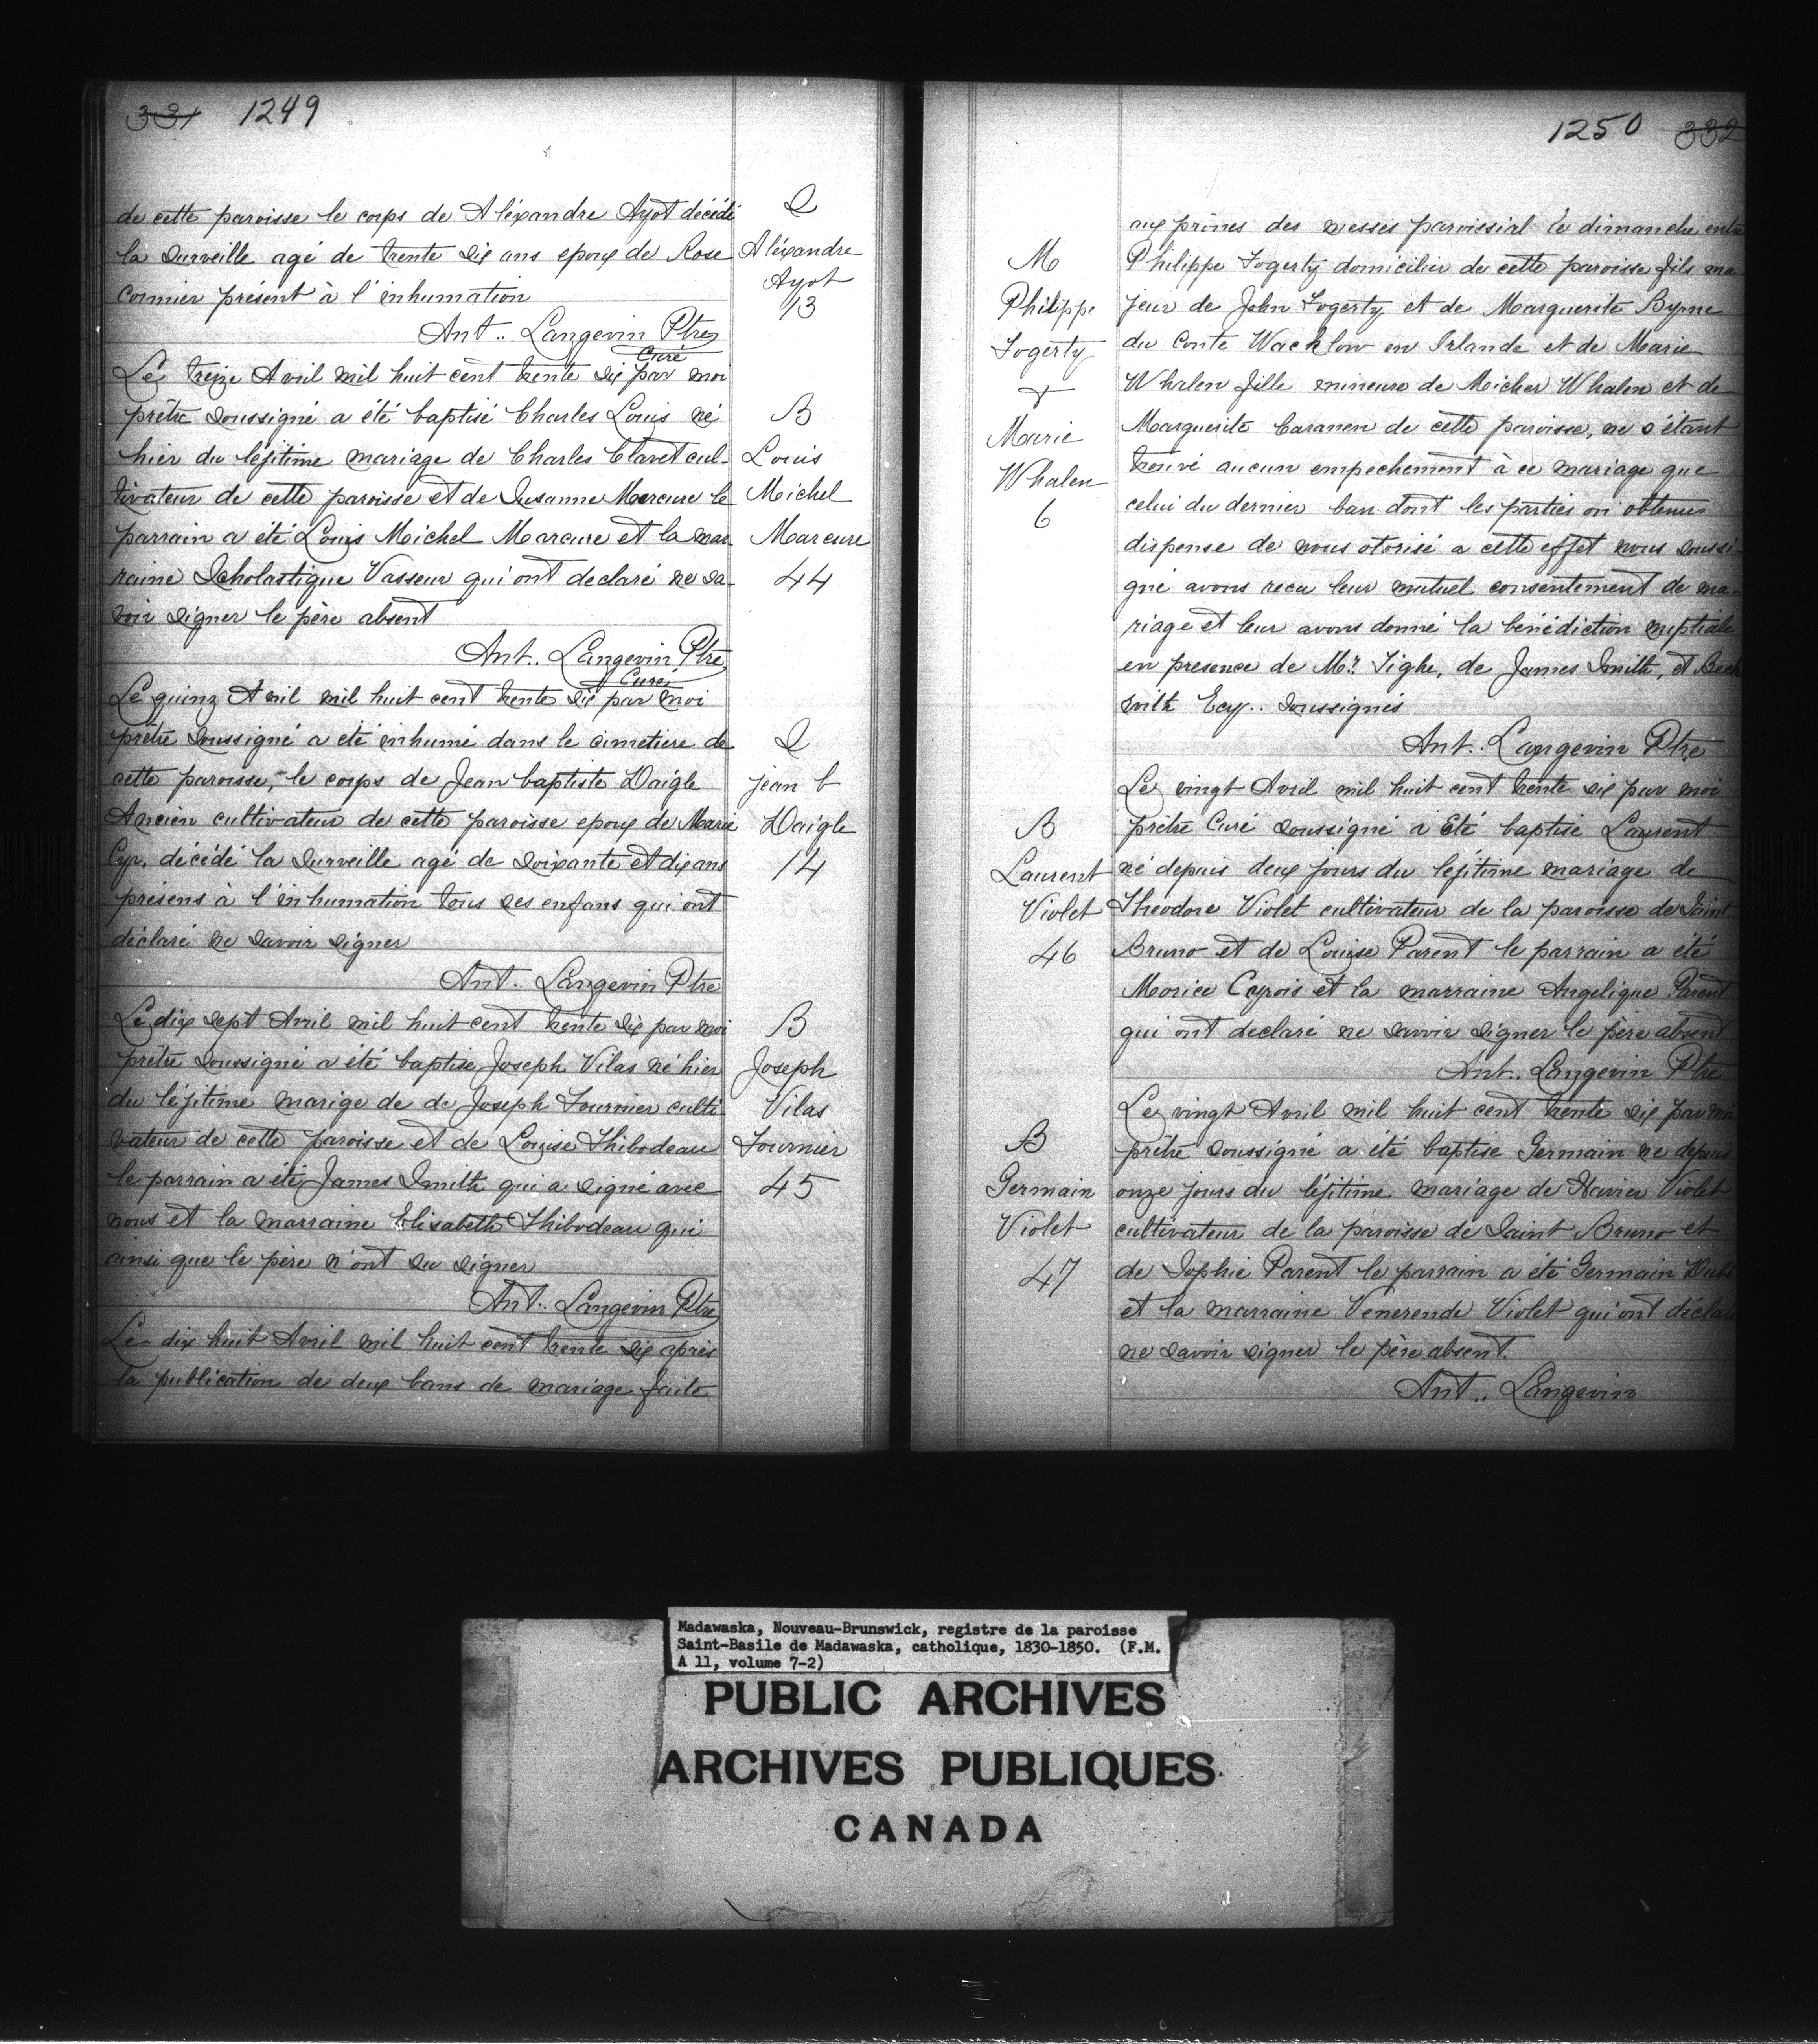 331 1249
de cette paroisse le corps de Aléxandre Ayot décédé
la surveille agé de trente six ans epoux de Rose
Cormier présent à l'inhumation
Ant.. Langevin Ptre
Curé
S
Aléxandre
Ayot
13
Le treize Avril mil huit cent trente six par moi
prêtre soussigné a été baptisé Charles Louis né
hier du léjitime mariage de Charles Clavet cul-
tivateur de cette paroisse et de Susanne Mercure le
parrain a été Louis Michel Marcure et la mar
raine Scholastique Vasseur qui ont declaré ne sa-
voir signer le père absent
Ant.. Langevin Ptre
Curé
B
Louis
Michel
Marcure
44
Le quinz Avril mil huit cent trente six par moi
prêtre soussigné a été inhumé dans le cimetiere de
cette paroisse, le corps de Jean baptiste Daigle
Ancien cultivateur de cette paroisse epoux de Marie
Cyr, décédé la surveille agé de soixante et dix ans
présens à l'inhumation tous ses enfans qui ont
déclaré ne savoir signer
Ant.. Langevin Ptre
S
jean b
Daigle
14
Le dix sept Avril mil huit cent trente six par moi
prêtre soussigné a été baptise Joseph Vilas né hier
du léjitime marige de de Joseph Fournier culti
vateur de cette paroisse et de Louise Thibodeau
le parrain a été James Smith qui a signé avec
nous et la marraine Elisabeth Thibodeau qui
ainsi que le père n'ont su signer
Ant.. Langevin Ptre
B
Joseph
Vilas
Fournier
45
Le dix huit Avril mil huit cent trente six après
la publication de deux bans de mariage faite
1250 332
aux prônes des messes paroissial le dimanche entre
Philippe Fogerty domicilier de cette paroisse fils ma
jeur de John Fogerty et de Marguerite Byrne
du Conte Wacklow en Irlande et de Marie
Whalen fille mineure de Micher Whalen et de
Marguerite Caranen de cette paroisse, ne s'étant
trouvé aucun empechement à ce mariage que
celui du dernier ban dont les parties on obtenus
dispense de nous otorisé a cette effet nous soussi
gné avons recu leur mutuel consentement de ma-
riage et leur avons donné la bénédiction nuptiale
en presence de Mr. Tighe, de James Smith, et Beck
with Ecy.. soussignés
Ant.. Langevin Ptre
M
Philippe
Fogerty
&
Marie
Whalen
6
Le vingt Avril mil huit cent trente six par moi
prêtre Curé soussigné a Eté baptisé Laurent
né depuis deux jours du lejitime mariage de
Theodore Violet cultivateur de la paroisse de Saint
Bruno et de Louise Parent le parrain a été
Morice Cyrois et la marraine Angelique Parent
qui ont declaré ne savoir signer le père absent
Ant.. Langevin Ptre
B
Laurent
Violet
46
Le vingt Avril mil huit cent trente six par moi
prêtre soussigné a été baptise Germain ne depuis
onze jours du léjitime mariage de Xavier Violet
cultivateur de la paroisse de Saint Bruno et
de Sophie Parent le parrain a été Germain Dubé
et la marraine Venerende Violet qui ont déclaré
ne savoir signer le père absent.
Ant.. Langevin
B
Germain
Violet
47
Madawaska, Nouveau-Brunswick, registre de la paroisse
Saint-Basile de Madawaska, catholique, 1830-1850. (F.M.
A 11, volume 7-2)
PUBLIC ARCHIVES
ARCHIVES PUBLIQUES
CANADA